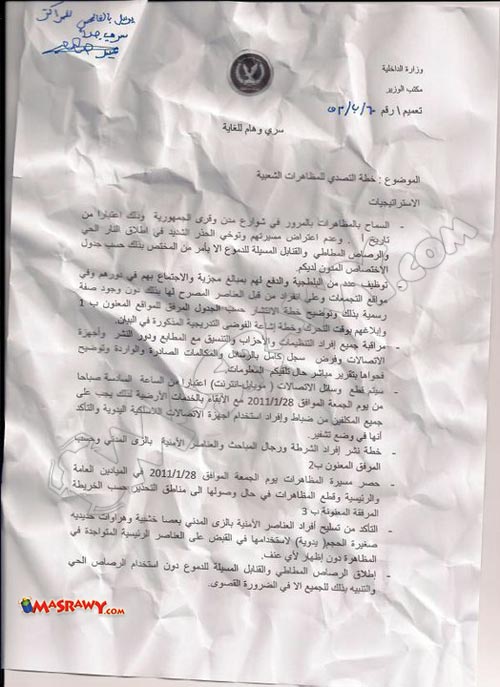 يرسل بالفاكس للمراكز
سري جدا
وزارة الداخلية
مكتب الوزير
تعميم \ رقم ٦٠/ب/٣
سري وهام للغاية
الموضوع : خطة التصدي للمظاهرات الشعبية
الاستراتيجيات
- السماح بالمظاهرات بالمرور في شوارع مدن وقرى الجمهورية وذلك اعتبارا من
تاريخ / . وعدم اعتراض مسيرتهم وتوخي الحذر الشديد في إطلاق النار الحي
والرصاص المطاطي والقنابل المسيلة للدموع الا بأمر من المختص بذلك حسب جدول
الاختصاص المدون لديكم.
- توظيف عدد من البلطجية والدفع لهم بمبالغ مجزية والاجتماع بهم في دورهم وفي
مواقع التجمعات وعلى انفراد من قبل العناصر المصرح لها بذلك دون وجود صفة
رسمية بذلك وتوضيح خطة الانتشار حسب الجدول المرفق للمواقع المعنون ب 1
وإبلاغهم بوقت التحرك وخطة إشاعة الفوضى التدريجية المذكورة في البيان.
- مراقبة جميع إفراد التنظيمات والأحزاب والتنسيق مع المطابع ودور النشر وأجهزة
الاتصالات وفرض سجل كامل بالرسائل والمكالمات الصادرة والواردة وتوضيح
فحواها بتقرير مباشر حال تلقيكم المعلومات.
- سيتم قطع وسائل الاتصالات ( موبايل-انترنت) اعتبارا من الساعة السادسة صباحا
من يوم الجمعة الموافق 2011/1/28 مع الأبقاء بالخدمات الارضية لذلك يجب على
جميع المكلفين من ضباط وإفراد استخدام اجهزة الاتصالات اللاسلكية اليدوية والتأكد
أنها في وضع تشفير.
- خطة نشر إفراد الشرطة ورجال المباحث والعناصر الأمنية بالزى المدني وحسب
المرفق المعنون ب2
- حصر مسيرة المظاهرات يوم الجمعة الموافق 2011/1/28 في الميادين العامة
والرئيسية وقطع المظاهرات في حال وصولها الى مناطق التحذير حسب الخريطة
المرفقة المعنونة ب 3
- التأكد من تسليح أفراد العناصر الأمنية بالزى المدني بعصا خشبية وهراوات حديديه
صغيرة الحجم( يدوية) لاستخدامها في القبض على العناصر الرئيسية المتواجدة في
المظاهرة دون إظهار لأي عنف.
- إطلاق الرصاص المطاطي والقنابل المسيلة للدموع دون استخدام الرصاص الحي
والتنبيه بذلك للجميع الا في الضرورة القصوى.
MASRAWY.COM